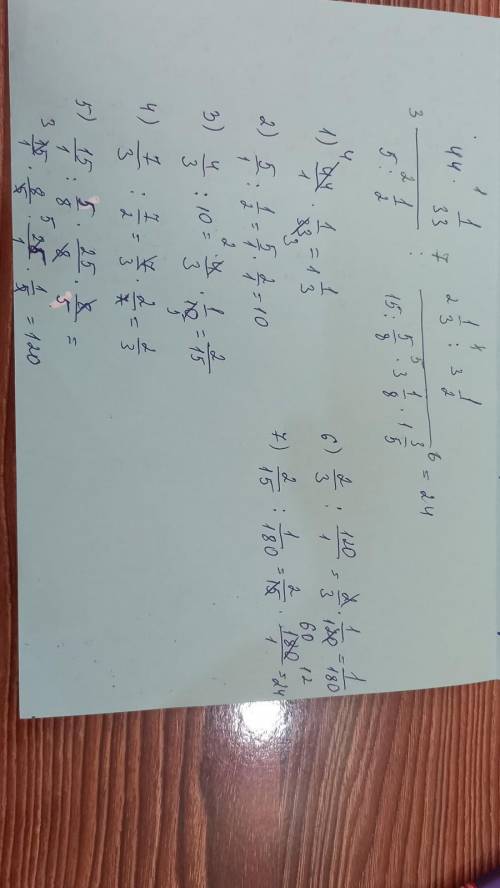 44 · 1/33 : 2 1/3 : 3 1/2
5 : 1/2 15 : 5/8 · 3 1/8 · 1 3/5 = 24
1) 44/1 · 1/33 = 1 1/3
2) 5/1 : 1/2 = 5/1 · 2/1 = 10
3) 4/3 : 10 = 4/3 · 1/10 = 2/15
4) 7/3 : 7/2 = 7/3 · 2/7 = 2/3
5) 15/1 : 5/8 · 25/8 · 8/5 =
15/1 · 8/5 · 25/8 · 8/5 = 120
6) 2/3 : 120/1 = 2/3 · 1/120 = 1/180
7) 2/15 : 1/180 = 2/15 · 180/1 = 24